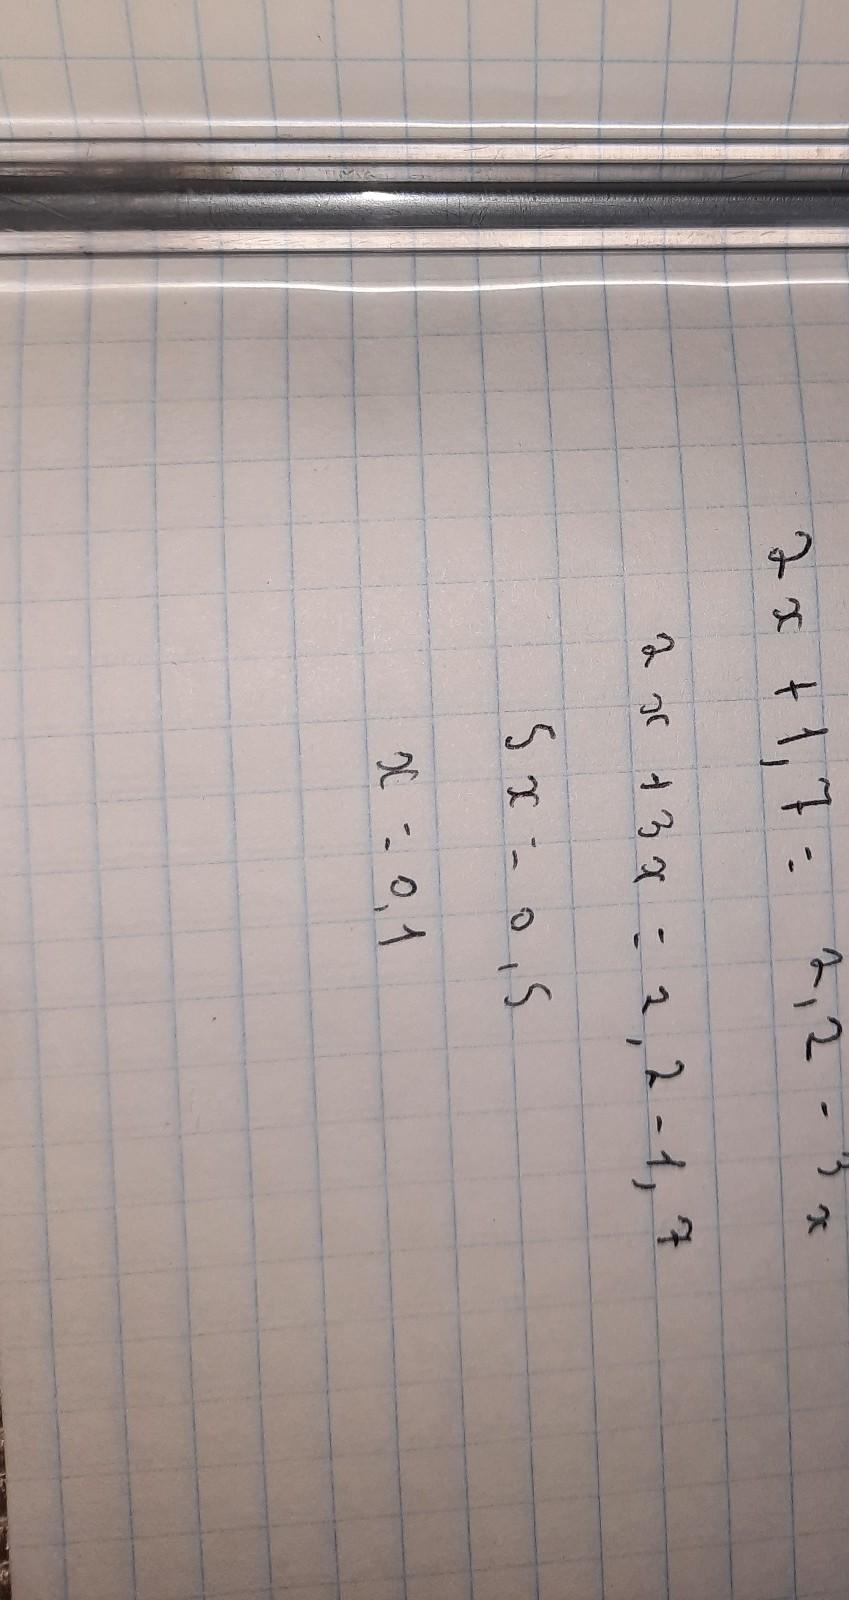 2x + 1,7 = 2,2 - 3x
2x + 3x = 2,2 - 1,7
5x = 0,5
x = 0,1